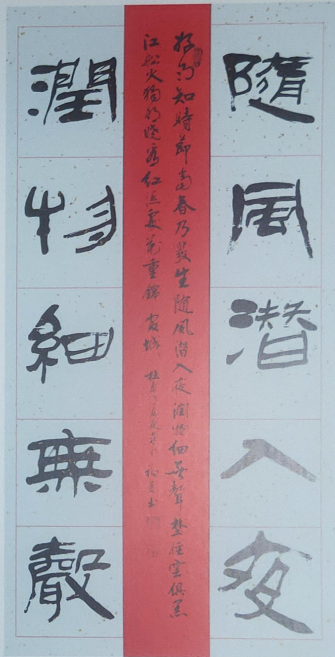 隨風潜入夜
好雨知時節當春乃發生隨風潜入夜潤物細無聲野徑雲俱黑
江船火獨明曉看紅濕處花重錦官城
潤物細無聲